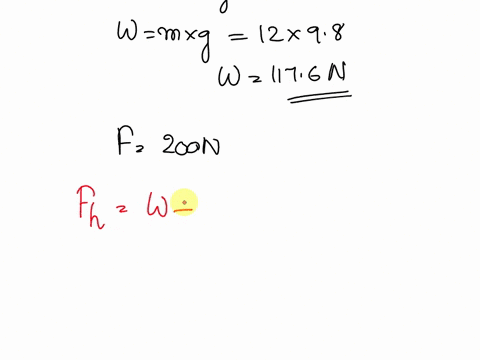 W = m × g = 12 × 9.8
W = 117.6 N
F = 200N
Fh = W